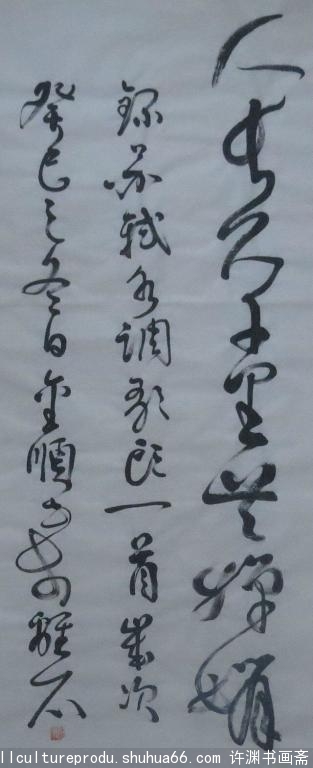 人长久千里共婵娟
录苏轼水调歌头一首岁次
癸巳之冬日金顺
llcultureprodu.shuhua66.com 许渊书画斋